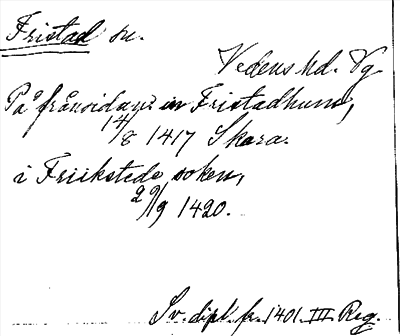 Fristad sn.
Vedens hd. Vg
På frånsidan: in Fristadhum,
14/8 1417 Skara.
i Friikstede soken,
29/9 1420.
Sv. dipl. fr. 1401. III. Reg.